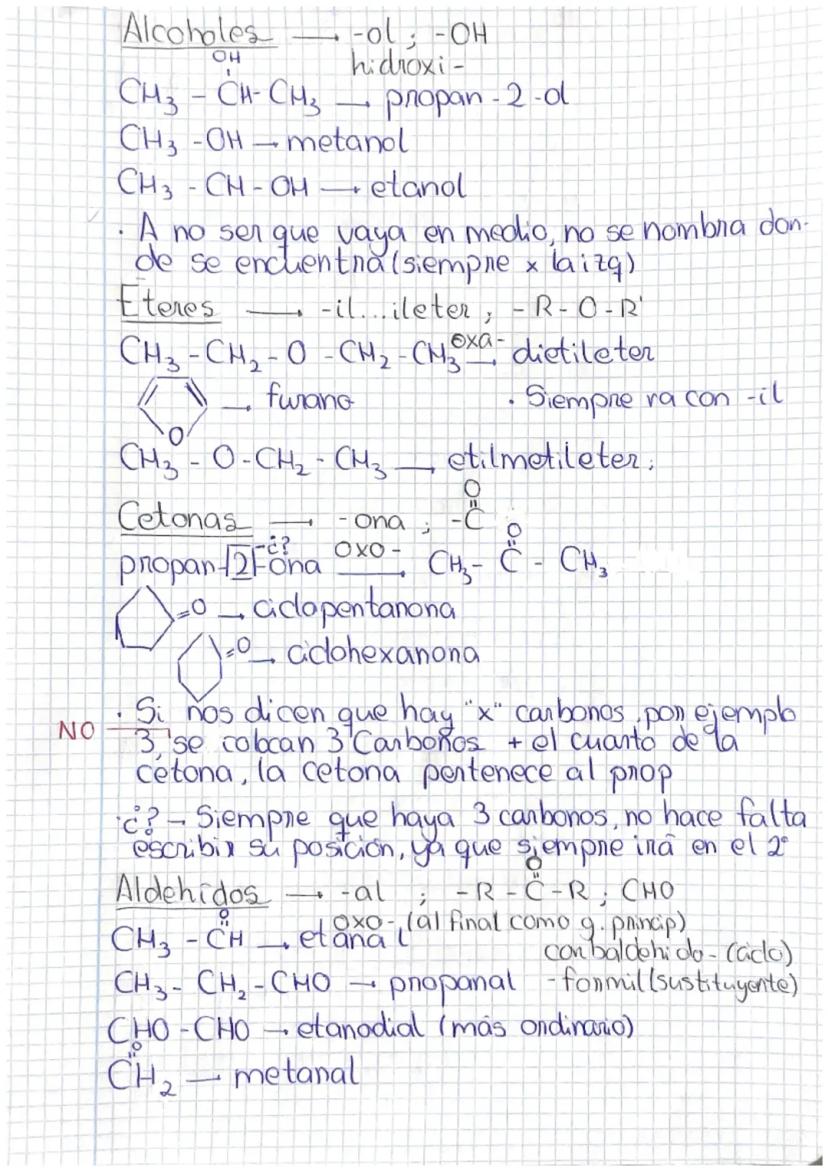 Alcoholes → -ol ; -OH
hidroxi-
OH
CH3 - CH - CH3 → propan-2-ol
CH3 - OH → metanol
CH3 - CH - OH → etanol
· A no ser que vaya en medio, no se nombra don-
de se encuentra (siempre x la izq)
Eteres → -il...ileter ; - R - O - R'
oxa-
CH3 - CH2 - O - CH2 - CH3 → dietileter
O → furano · Siempre va con -il
CH3 - O - CH2 - CH3 → etilmetileter;
O
Cetonas → -ona ; -C
¿? oxo- O
propan-2-ona → CH3 - C - CH3
=O → ciclopentanona
=O → ciclohexanona
· Si nos dicen que hay "x" carbonos, por ejemplo
NO 3, se colocan 3 Carbonos + el cuarto de la
cetona, la cetona pertenece al prop
·¿? → Siempre que haya 3 carbonos, no hace falta
escribir su posición, ya que siempre irá en el 2º
O
Aldehidos → -al ; -R - C - R ; CHO
O oxo- (al final como g. princip)
CH3 - CH → etanal
carbaldehido- (ciclo)
CH3 - CH2 - CHO → propanal - formil (sustituyente)
CHO - CHO → etanodial (más ordinario)
O
CH2 → metanal